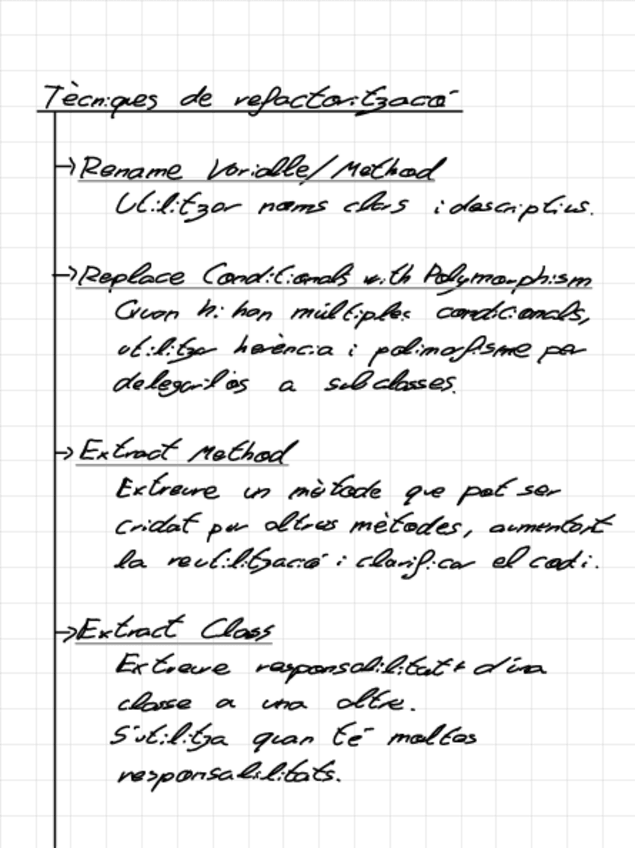 Tècniques de refactorització
→ Rename Variable/Method
Utilitzar noms clars i descriptius.
→ Replace Conditionals with Polymorphism
Quan hi han múltiples condicionals,
utilitzar herència i polimorfisme per
a subclasses.
→ Extract Method
Extreure un mètode que pot ser
cridat per altres mètodes, aumentant
la reutilització i clarificar el codi.
→ Extract Class
Extreure responsabilitats d'una
classe a una altre.
S'utilitza quan té moltes
responsabilitats.